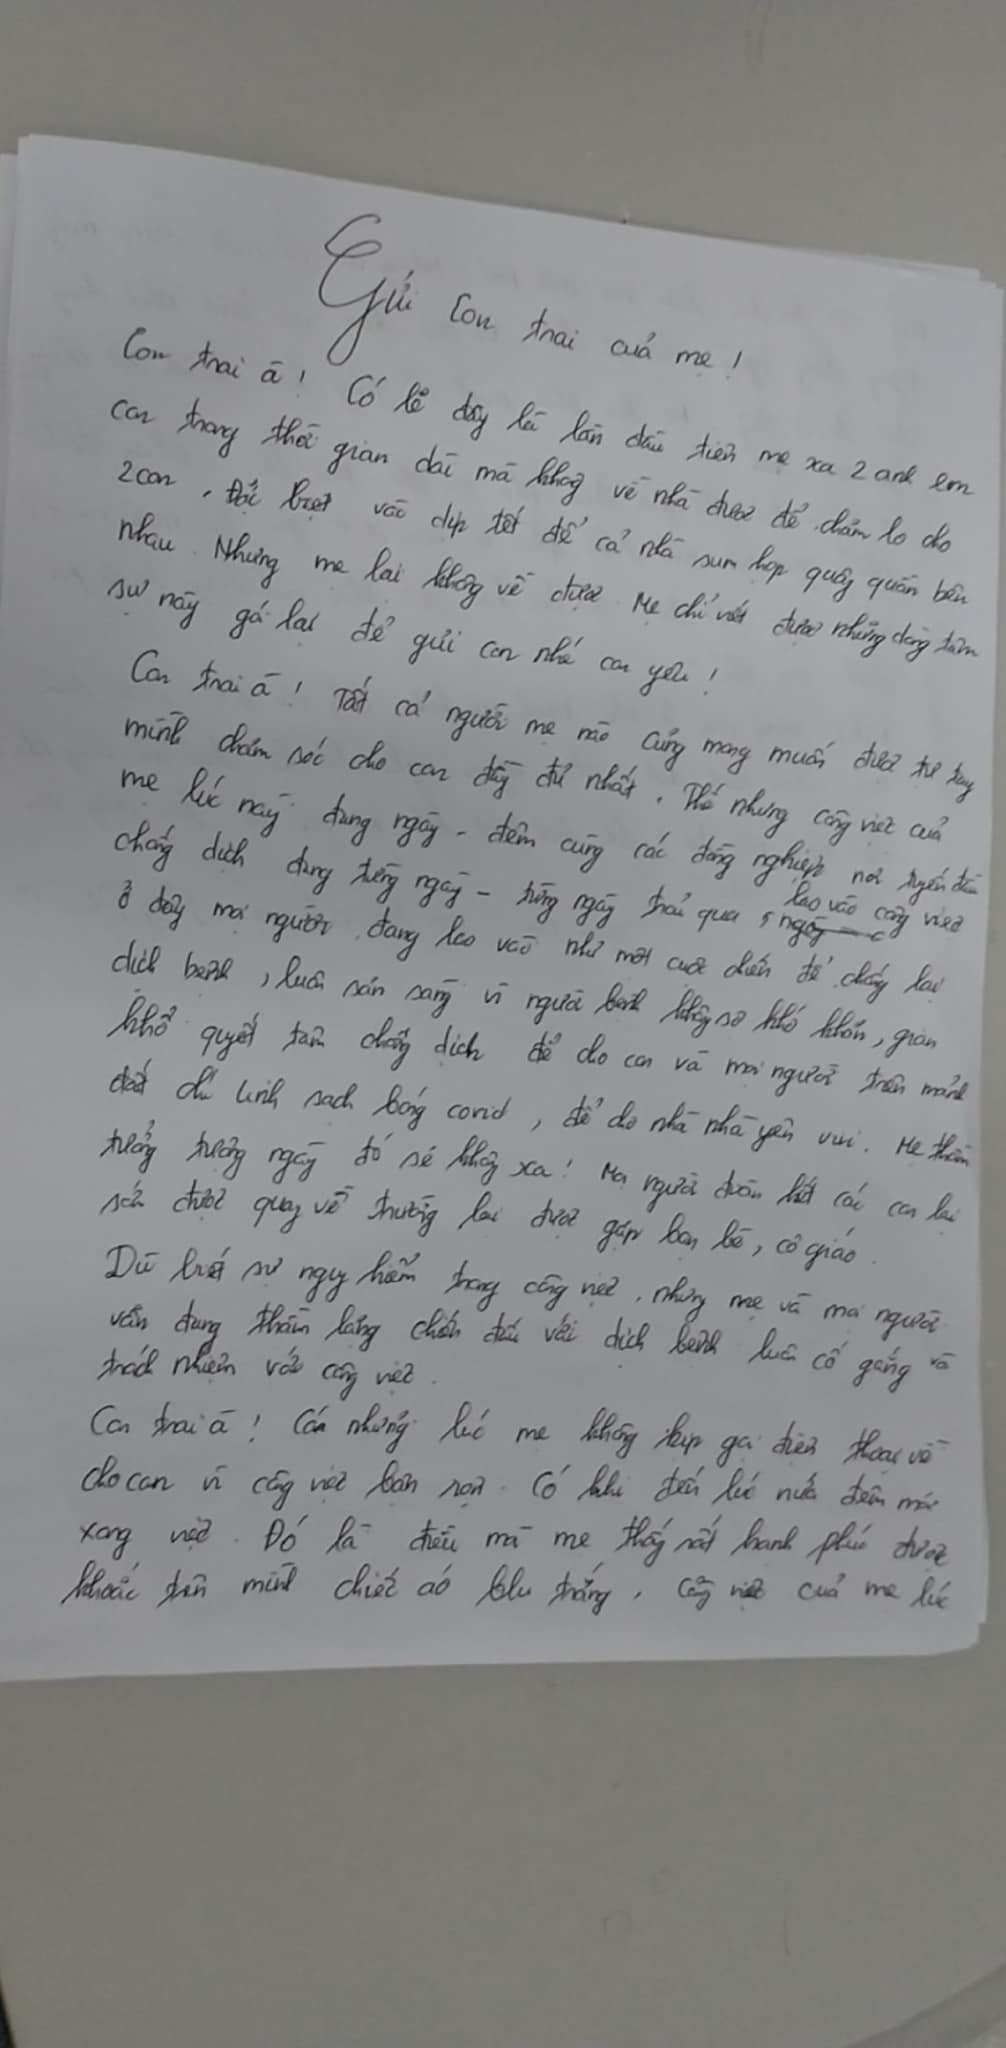 Gửi con trai của mẹ!
Con trai à! Có lẽ đây là lần đầu tiên mẹ xa 2 anh em
con trong thời gian dài mà không về nhà được để chăm lo cho
2 con, đặc biệt vào dịp tết để cả nhà sum họp quây quần bên
nhau. Nhưng mẹ lại không về được. Mẹ chỉ viết được những dòng tâm
sự này gói lại để gửi con nhé con yêu!
Con trai à! Tất cả người mẹ nào cũng mong muốn được tự tay
mình chăm sóc cho con đầy đủ nhất. Thế nhưng công việc của
mẹ lúc này đang ngày - đêm cùng các đồng nghiệp nơi tuyến đầu
chống dịch đang từng ngày - từng ngày trải qua, lao vào công việc
ở đây mọi người đang lao vào như một cuộc chiến để chống lại
dịch bệnh, luôn sẵn sàng vì người bệnh không sợ khó khăn, gian
khổ quyết tâm chống dịch để cho con và mọi người trên mảnh
đất chí linh sạch bóng covid, để cho nhà nhà yên vui. Mẹ thầm
tưởng tượng ngày đó sẽ không xa! Mọi người đoàn kết các con lại
sớm được quay về trường lại được gặp bạn bè, cô giáo.
Dù biết sự nguy hiểm trong công việc, nhưng mẹ và mọi người
vẫn đang thầm lặng chiến đấu với dịch bệnh luôn cố gắng và
trách nhiệm với công việc.
Con trai à! Có những lúc mẹ không kịp gọi điện thoại về
cho con vì công việc bận rộn. Có khi đến lúc nửa đêm mới
xong việc. Đó là điều mà mẹ thấy rất hạnh phúc được
khoác trên mình chiếc áo blu trắng, công việc của mẹ lúc